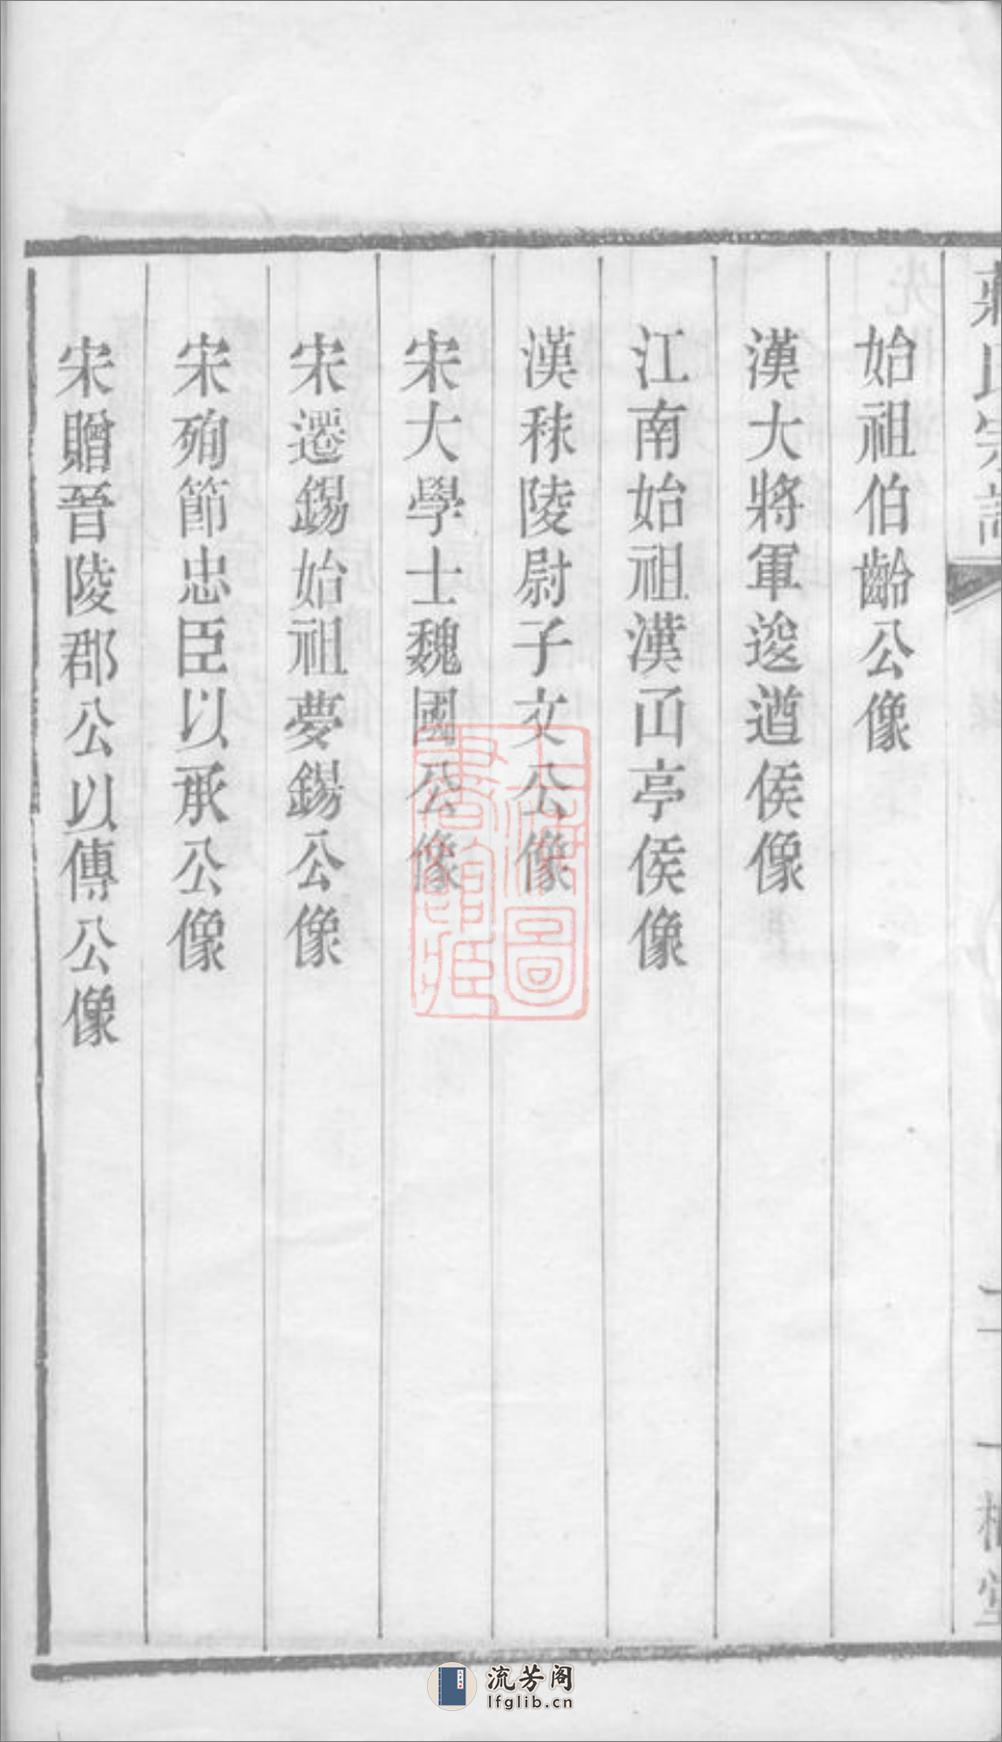 始祖伯齡公像
漢大將軍逡遒侯像
江南始祖漢㓋亭侯像
漢秣陵尉子文公像
宋大學士魏國公像
宋遷錫始祖夢錫公像
宋殉節忠臣以承公像
宋贈晉陵郡公以傳公像
上海圖書館藏
流芳阁
lfglib.cn